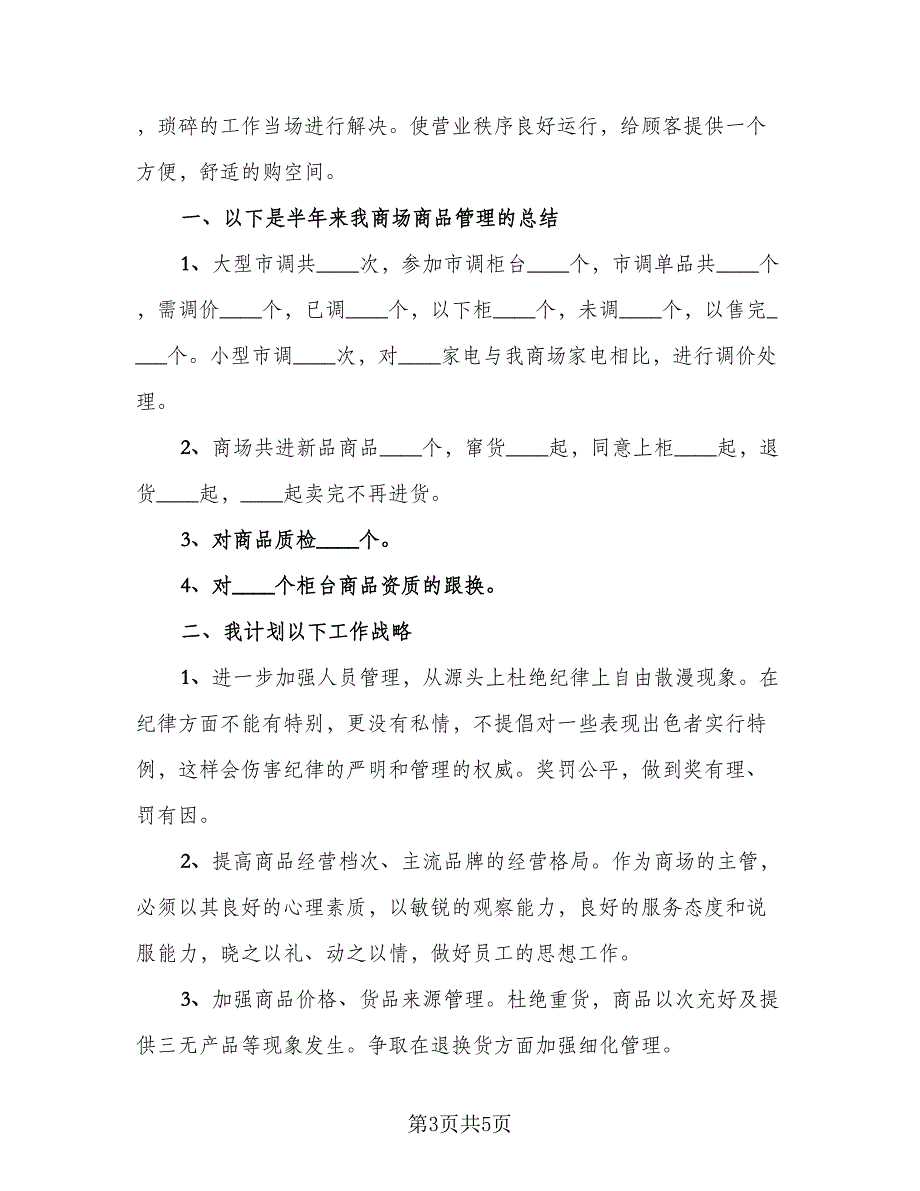 ，琐碎的工作当场进行解决。使营业秩序良好运行，给顾客提供一个
方便，舒适的购空间。
一、以下是半年来我商场商品管理的总结
1、大型市调共____次，参加市调柜台____个，市调单品共____个
，需调价____个，已调____个，以下柜____个，未调____个，以售完_
___个。小型市调____次，对____家电与我商场家电相比，进行调价处
理。
2、商场共进新品商品____个，窜货____起，同意上柜____起，退
货____起，____起卖完不再进货。
3、对商品质检____个。
4、对____个柜台商品资质的跟换。
二、我计划以下工作战略
1、进一步加强人员管理，从源头上杜绝纪律上自由散漫现象。在
纪律方面不能有特别，更没有私情，不提倡对一些表现出色者实行特
例，这样会伤害纪律的严明和管理的权威。奖罚公平，做到奖有理、
罚有因。
2、提高商品经营档次、主流品牌的经营格局。作为商场的主管，
必须以其良好的心理素质，以敏锐的观察能力，良好的服务态度和说
服能力，晓之以礼、动之以情，做好员工的思想工作。
3、加强商品价格、货品来源管理。杜绝重货，商品以次充好及提
供三无产品等现象发生。争取在退换货方面加强细化管理。
第3页共5页